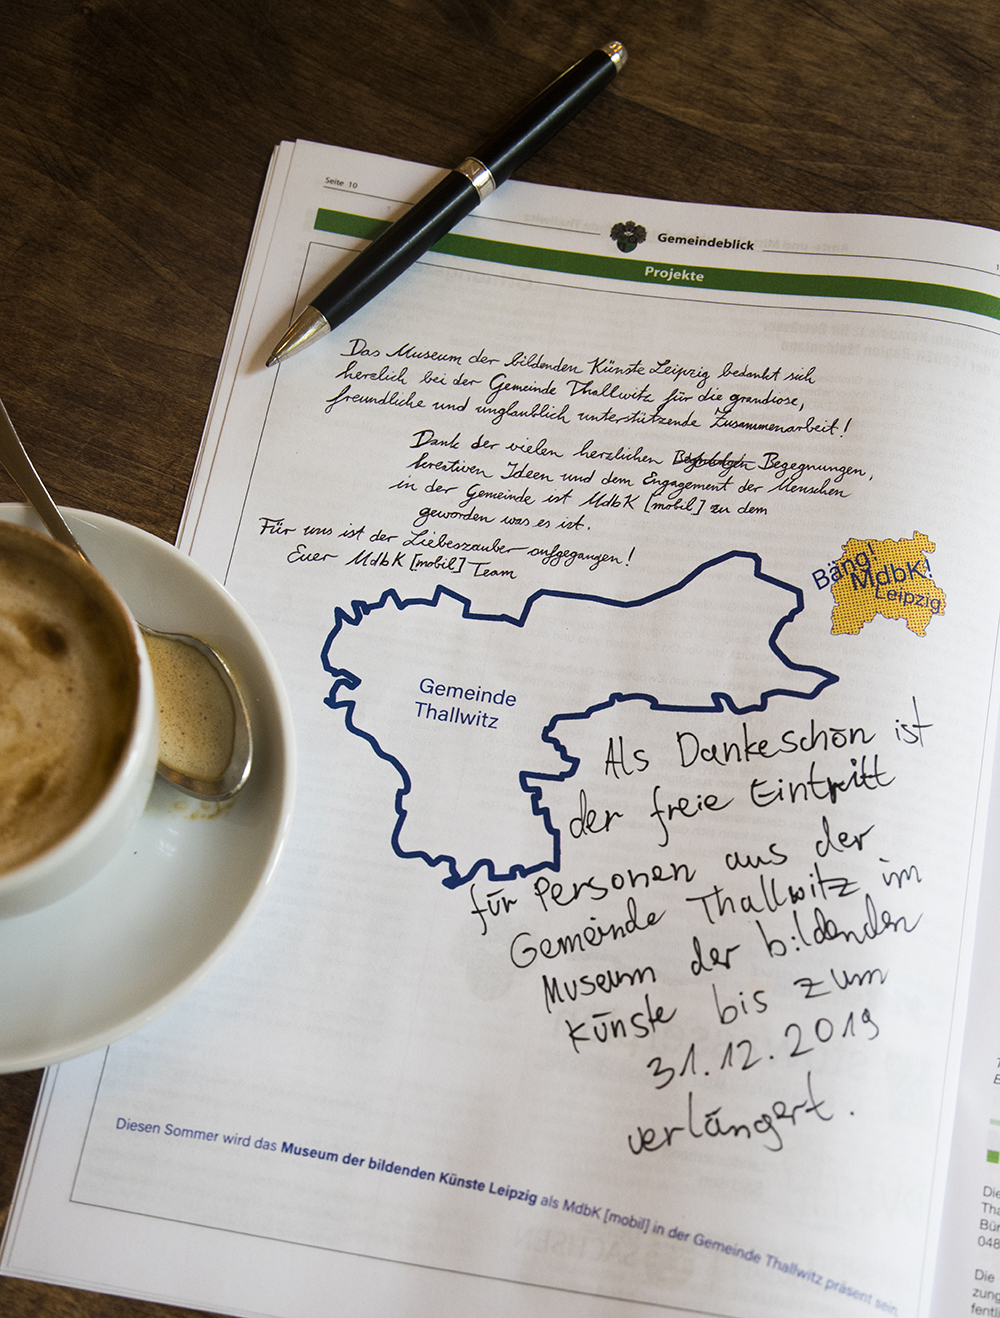 Seite 10
Gemeindeblick
Projekte
Das Museum der bildenden Künste Leipzig bedankt sich
herzlich bei der Gemeinde Thallwitz für die grandiose,
freundliche und unglaublich unterstützende Zusammenarbeit!
Dank der vielen herzlichen Begegnungen,
kreativen Ideen und dem Engagement der Menschen
in der Gemeinde ist MdbK [mobil] zu dem
geworden was es ist.
Für uns ist der Liebeszauber aufgegangen!
Euer MdbK [mobil] Team
Bäng!
MdbK!
Leipzig
Gemeinde
Thallwitz
Als Dankeschön ist
der freie Eintritt
für Personen aus der
Gemeinde Thallwitz im
Museum der bildenden
Künste bis zum
31.12.2019
verlängert.
Diesen Sommer wird das Museum der bildenden Künste Leipzig als MdbK [mobil] in der Gemeinde Thallwitz präsent sein.
Die
Tha
Bür
048
Die
zung
fentl